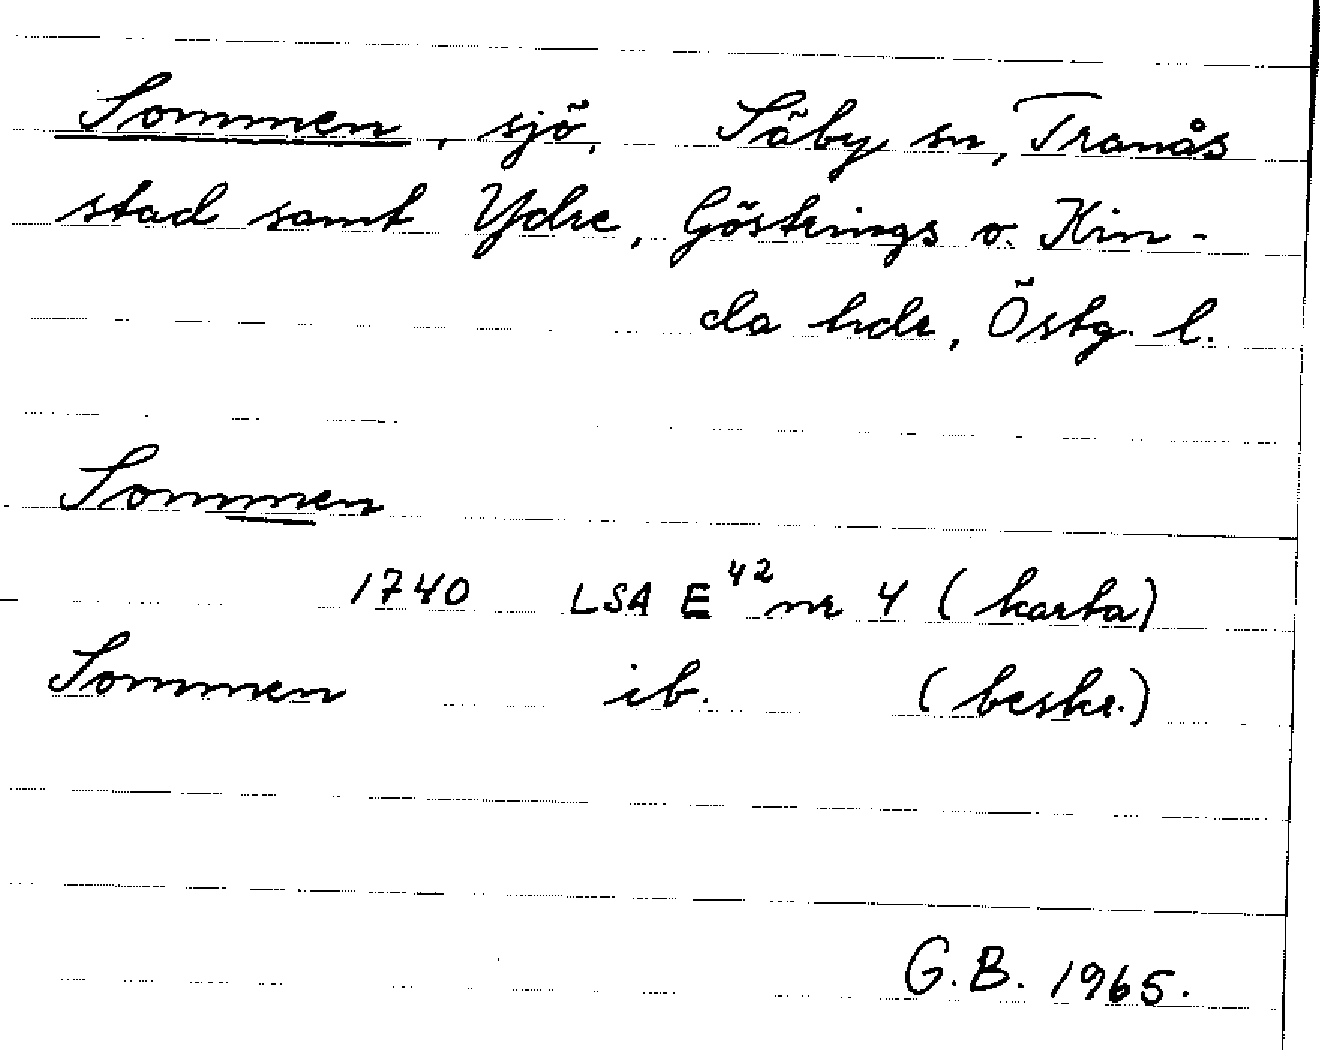 Sommen, sjö, Säby sn, Tranås
stad samt Ydre, Göstrings o. Kin-
da hdr, Östg. l.
Sommen
1740 LSA E⁴² nr 4 (karta)
Sommen ib. (beskr.)
G.B. 1965.